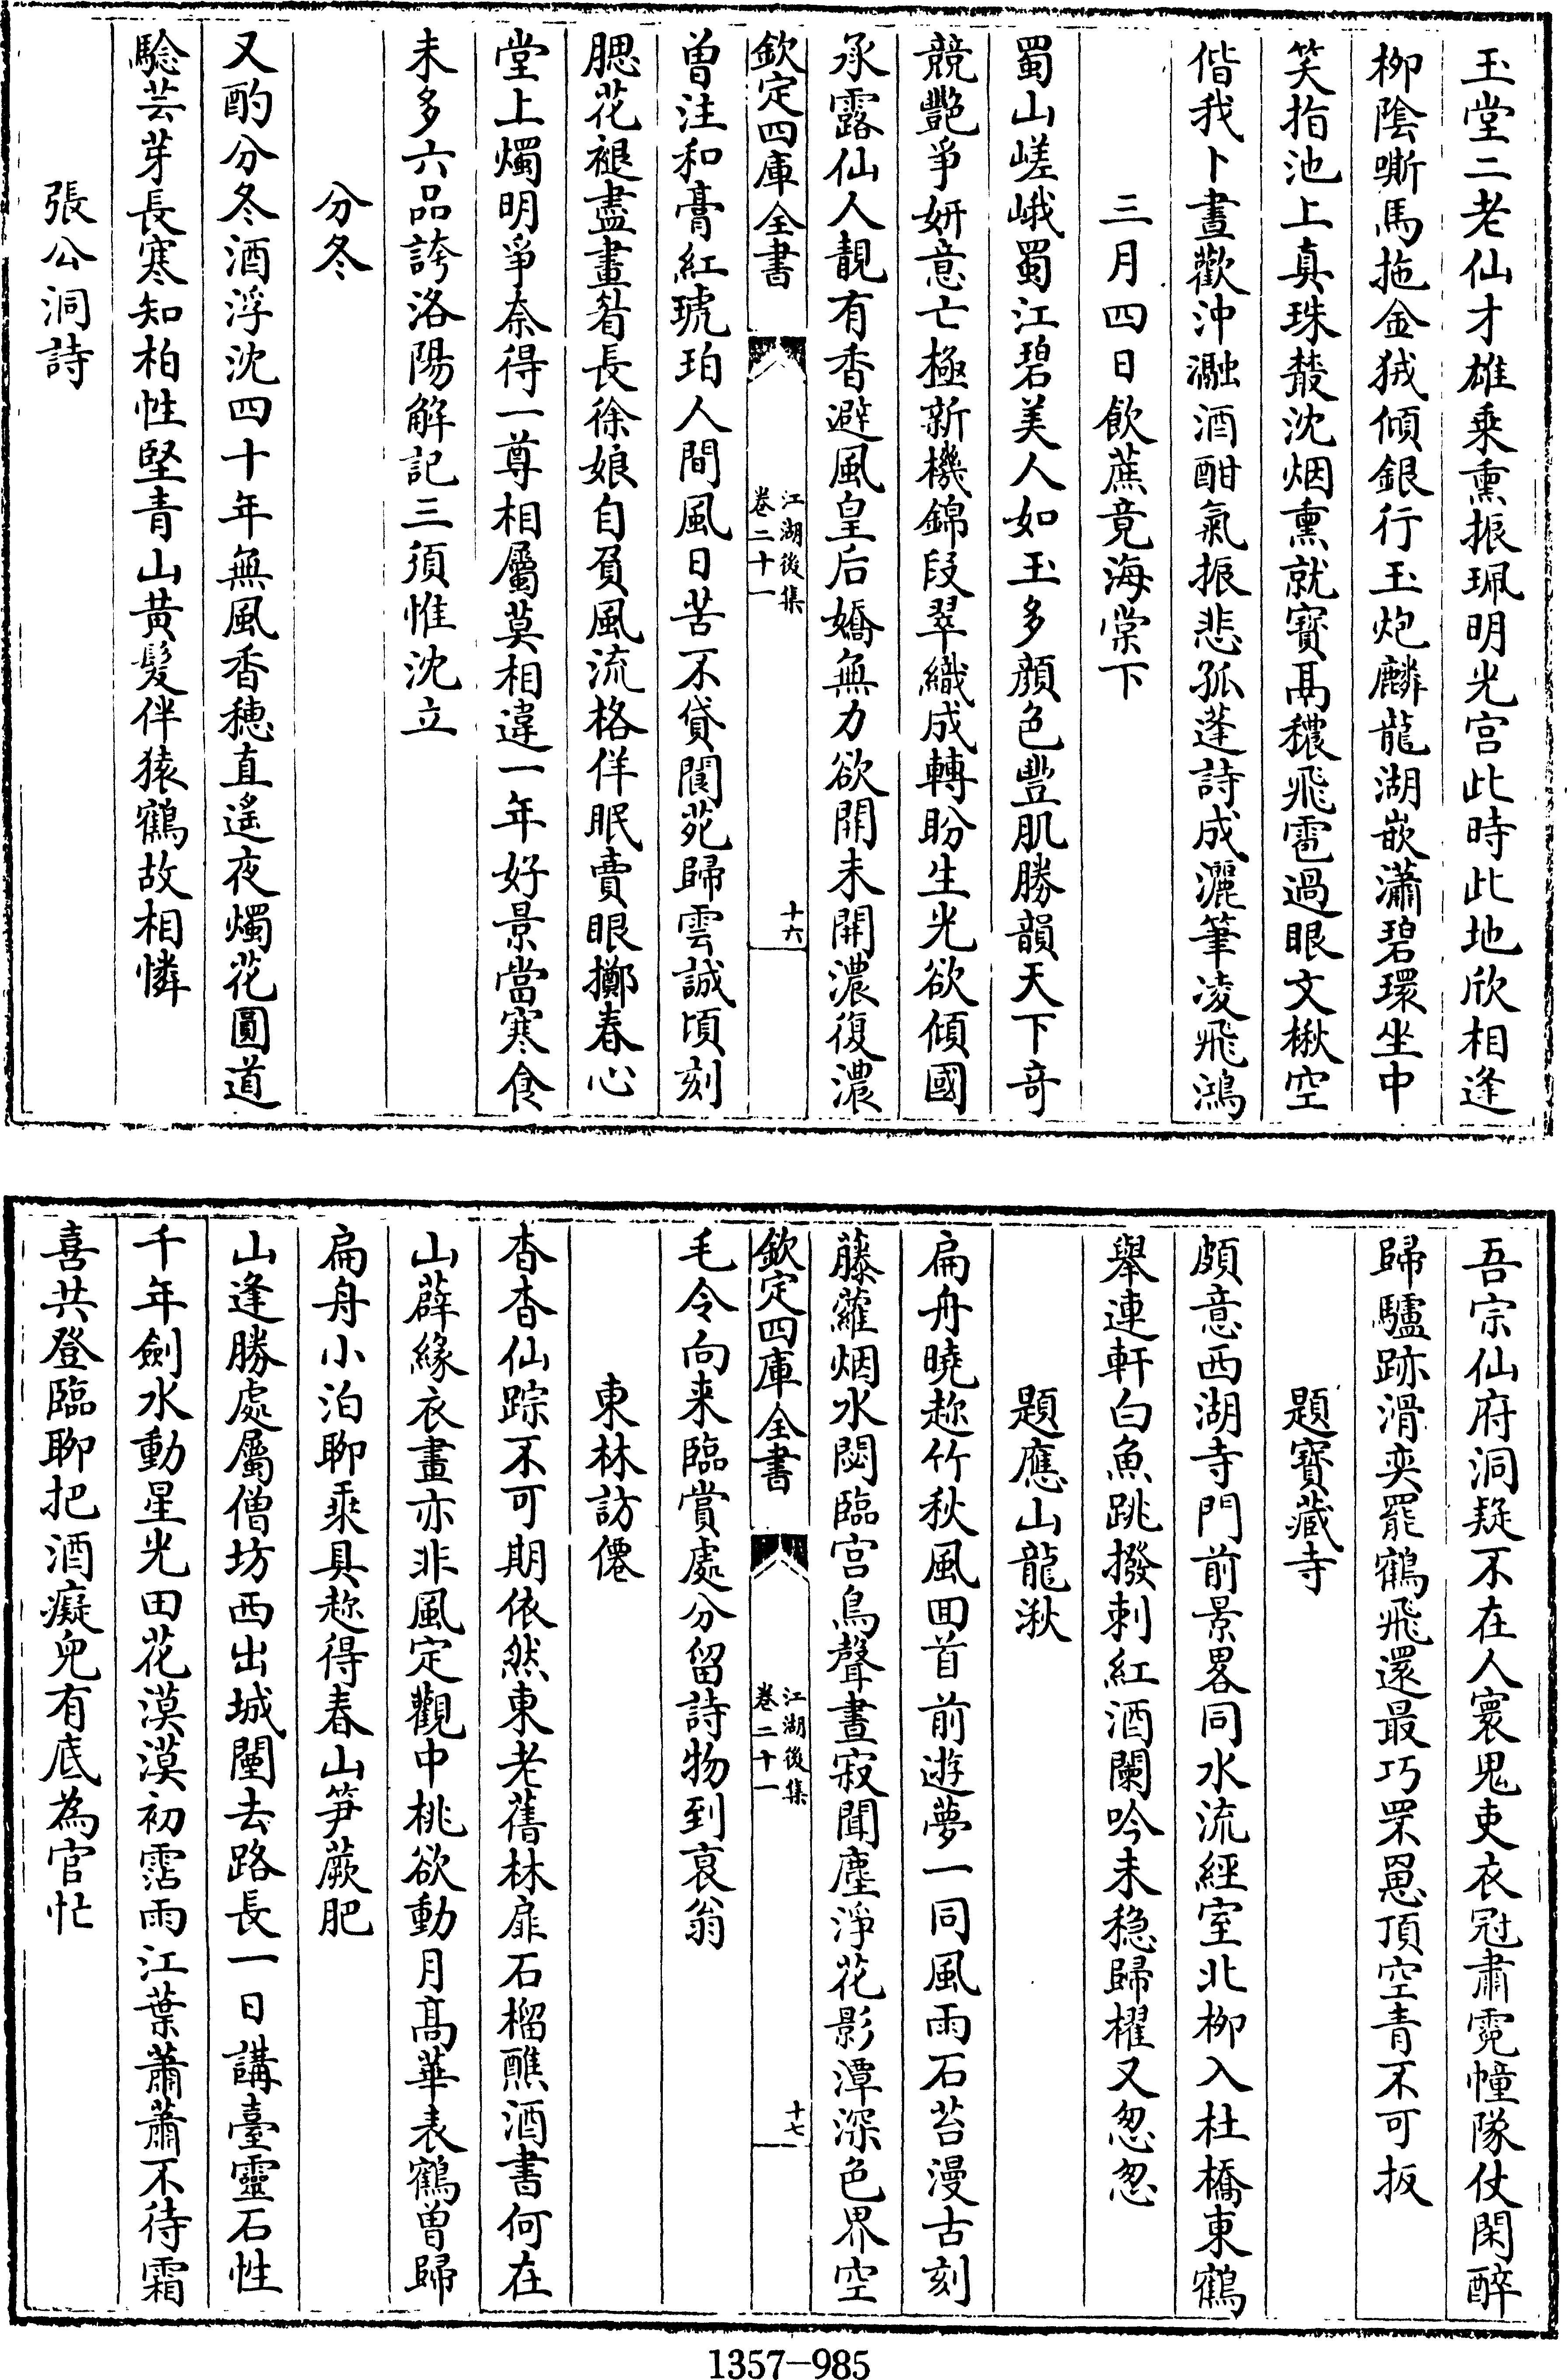 玉堂二老仙才雄乗熏振珮明光宫此時此地欣相逢
柳隂嘶馬拖金狨傾銀行玉炮麟龍湖嵌瀟碧環坐中
笑指池上真珠藂沈烟熏就寳鬲穠飛雹過眼文楸空
偕我卜晝歡沖瀜酒酣氣振悲孤蓬詩成灑筆凌飛鴻
三月四日飲蕉竟海棠下
蜀山嵯峨蜀江碧美人如玉多顔色豐肌勝韻天下竒
競艷爭妍意亡極新機錦段翠織成轉盼生光欲傾國
承露仙人靚有香避風皇后嬌無力欲開未開濃復濃
欽定四庫全書
江湖後集
卷二十一
十六
曽注和膏紅琥珀人間風日苦不貸閬苑歸雲誠頃刻
腮花褪盡畫眉長徐娘自負風流格佯眠賣眼擲春心
堂上燭明爭奈得一尊相屬莫相違一年好景當寒食
未多六品誇洛陽解記三須惟沈立
分冬
又酌分冬酒浮沈四十年無風香穗直遙夜燭花圓道
騐芸芽長寒知柏性堅青山黄髪伴猿鶴故相憐
張公洞詩
吾宗仙府洞疑不在人寰鬼吏衣冠肅霓幢隊仗閑醉
歸驢跡滑奕罷鶴飛還最巧罘罳頂空青不可扳
題寳藏寺
頗意西湖寺門前景畧同水流經室北柳入杜橋東鶴
舉連軒白魚跳撥剌紅酒闌吟未穏歸櫂又怱怱
題應山龍湫
扁舟曉趂竹秋風囬首前遊夢一同風雨石苔漫古刻
藤蘿烟水閟臨宫鳥聲晝寂聞塵淨花影潭深色界空
欽定四庫全書
江湖後集
卷二十一
十七
毛令向来臨賞處分留詩物到衰翁
東林訪僊
杳杳仙踪不可期依然東老舊林扉石榴醮酒書何在
山薜緣衣畫亦非風定觀中桃欲動月髙華表鶴曽歸
扁舟小泊聊乘具趂得春山笋蕨肥
山逢勝處屬僧坊西出城闉去路長一日講臺靈石性
千年劍水動星光田花漠漠初霑雨江葉蕭蕭不待霜
喜共登臨聊把酒癡兒有底為官忙
1357-985